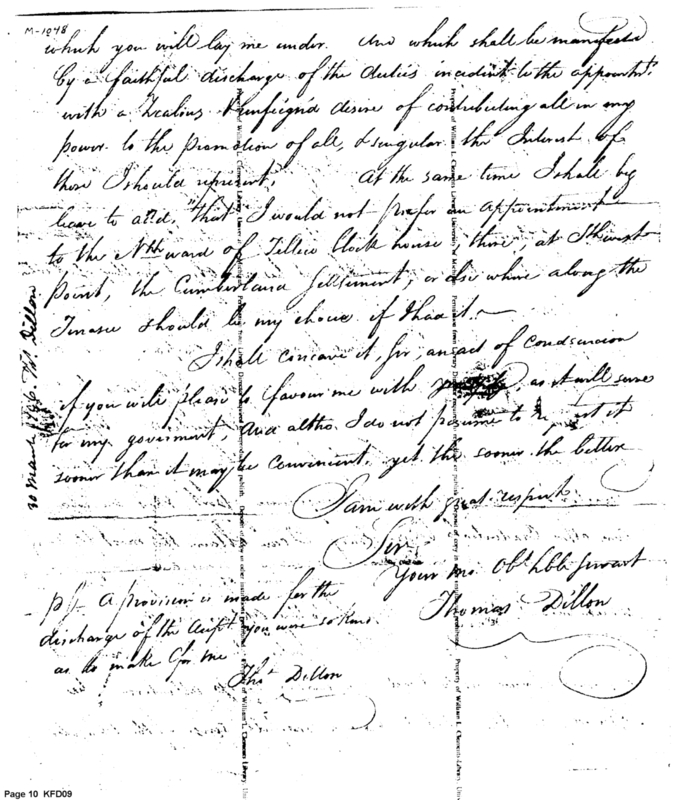 M-1048
which you will lay me under. And which shall be manifested
by a faithful discharge of the duties incident to the appointmt.
with a Zealous & unfeigned desire of contributing all in my
power to the promotion of all, & singular the Interest of
those I should represent, At the same time I shall beg
leave to add, "that I would not prefer an appointment
to the Nth ward of Tellico Block house there, at Sthwest
point, the Cumberland Settlement, or else where along the
Tenasee should be my choice if I had it.
I shall conceave it, Sir, an act of condesension
if you will please to favour me with as it will serve
for my goverment, and altho I do not presume to it
sooner than it may be convenient, yet the sooner the better
I am with great respect
Sir
Your mo. Obt. hble servant
Thomas Dillon
P.S. A provision is made for the
discharge of the you were so kind
as to make for me
Thos. Dillon
Thos. Dillon
Property of William L. Clements Library
Page 10 KFD09